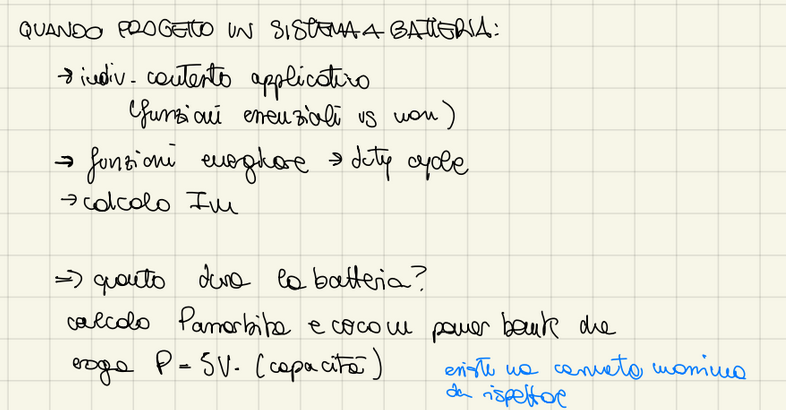 QUANDO PROGETTO UN SISTEMA A BATTERIA:
→ indiv. contesto applicativo
(funzioni essenziali vs non)
→ funzioni energivore → duty cycle
→ calcolo Im
⇒ quanto dura la batteria?
calcolo Passorbita e cerco un power bank che
eroga P = 5V · (capacità)
esiste una corrente massima
da rispettare